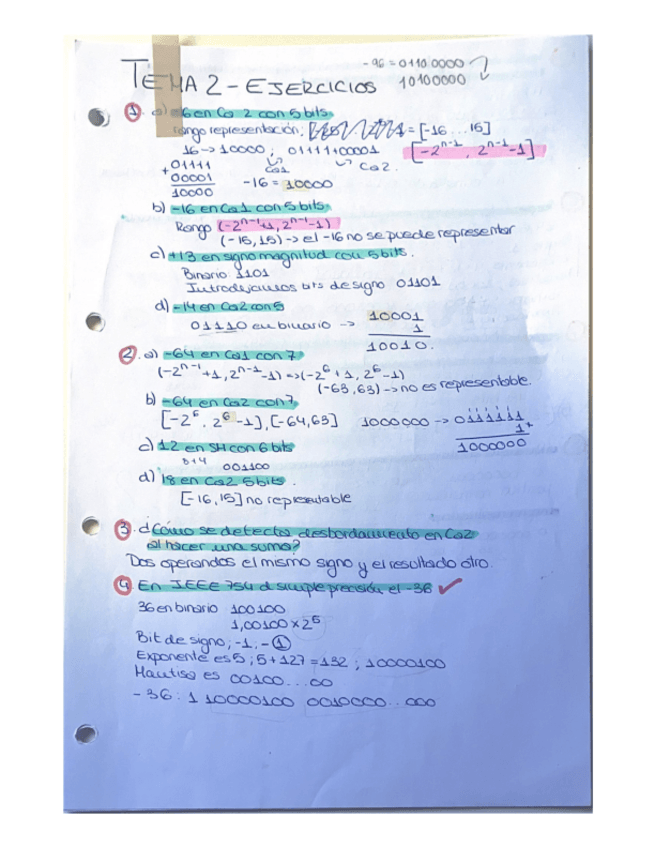 - 96 = 0110 0000
TEMA 2 - EJERCICIOS 10100000
1. a) -16 en Ca 2 con 5 bits.
rango representación; = [-16 ... 15]
16 -> 10000 ; 01111+00001 [-2^n-1, 2^n-1 -1]
+01111 Ca1 Ca2.
00001 -16 = 10000.
10000
b) -16 en Ca1 con 5 bits.
Rango (-2^n-1+1, 2^n-1-1)
(-15, 15) -> el -16 no se puede representar
c) +13 en signo magnitud con 5 bits.
Binario 1101
Introducimos bits de signo 01101
d) -14 en Ca2 con 5
01110 en binario -> 10001
1
10010.
2. a) -64 en Ca1 con 7
(-2^n-1+1, 2^n-1-1) => (-2^6+1, 2^6-1)
(-63, 63) -> no es representable.
b) -64 en Ca2 con 7
[-2^6, 2^6-1], [-64, 63] 1000000 -> 0111111
1+
1000000
c) 12 en SM con 6 bits
8+4 001100
d) 18 en Ca2 5 bits.
[-16, 15] no representable
3. ¿Cómo se detecta desbordamiento en Ca2
al hacer una suma?
Dos operandos el mismo signo y el resultado otro.
4. En IEEE 754 d simple precisión el -36 ✓
36 en binario 100100
1,00100 x 2^5
Bit de signo; -1; - 1
Exponente es 5; 5+127 = 132 ; 10000100
Mantisa es 00100....00
- 36: 1 10000100 0010000...000